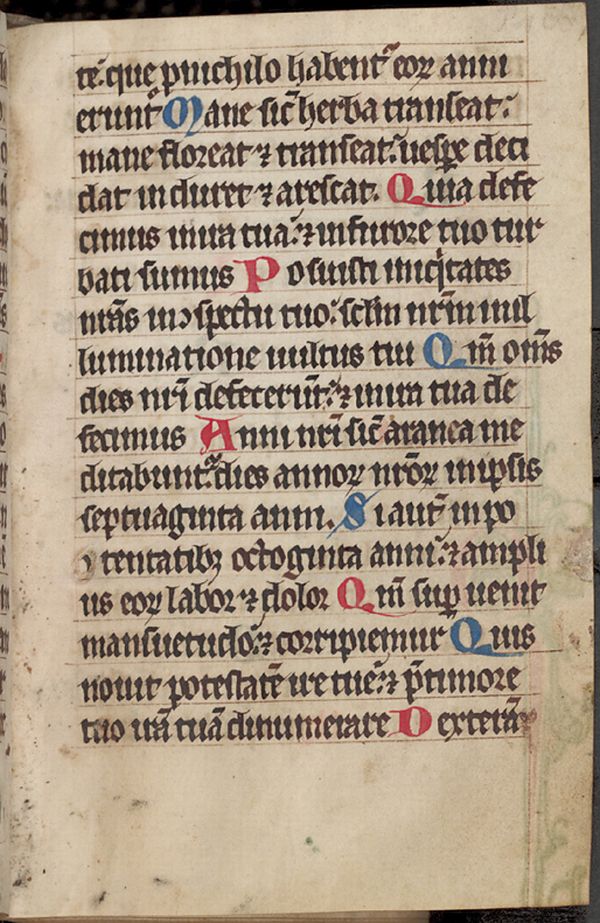 tē. que pnichilo habent᷑ eoꝝ anni
erunt᷑ Mane sic̄ herba transeat:
mane floreat ⁊ transeat: uesꝑe deci
dat induret ⁊ arescat. Quia defe
cimus in ira tua: ⁊ in furore tuo tur
bati sumus Posuisti iniq̇tates
nr̄as in ɔspectu tuo: sc̄lm nr̄m in il
luminatione uultus tui Qm̄ om̄s
dies nr̄i defecerūt: ⁊ in ira tua de
fecimus Anni nr̄i sic̄ aranea me
ditabunt᷑: dies annoꝝ nr̄oꝝ in ip̄sis
septuaginta anni. Si aut̄ in po
tentatibꝫ octoginta anni: ⁊ ampli
us eoꝝ labor ⁊ dolor Qm̄ suꝑ uenit
mansuetudo: ⁊ corripiemur Quis
nouit potestatē ire tue: ⁊ p̄ timore
tuo irā tuā dinumerare Dexterā